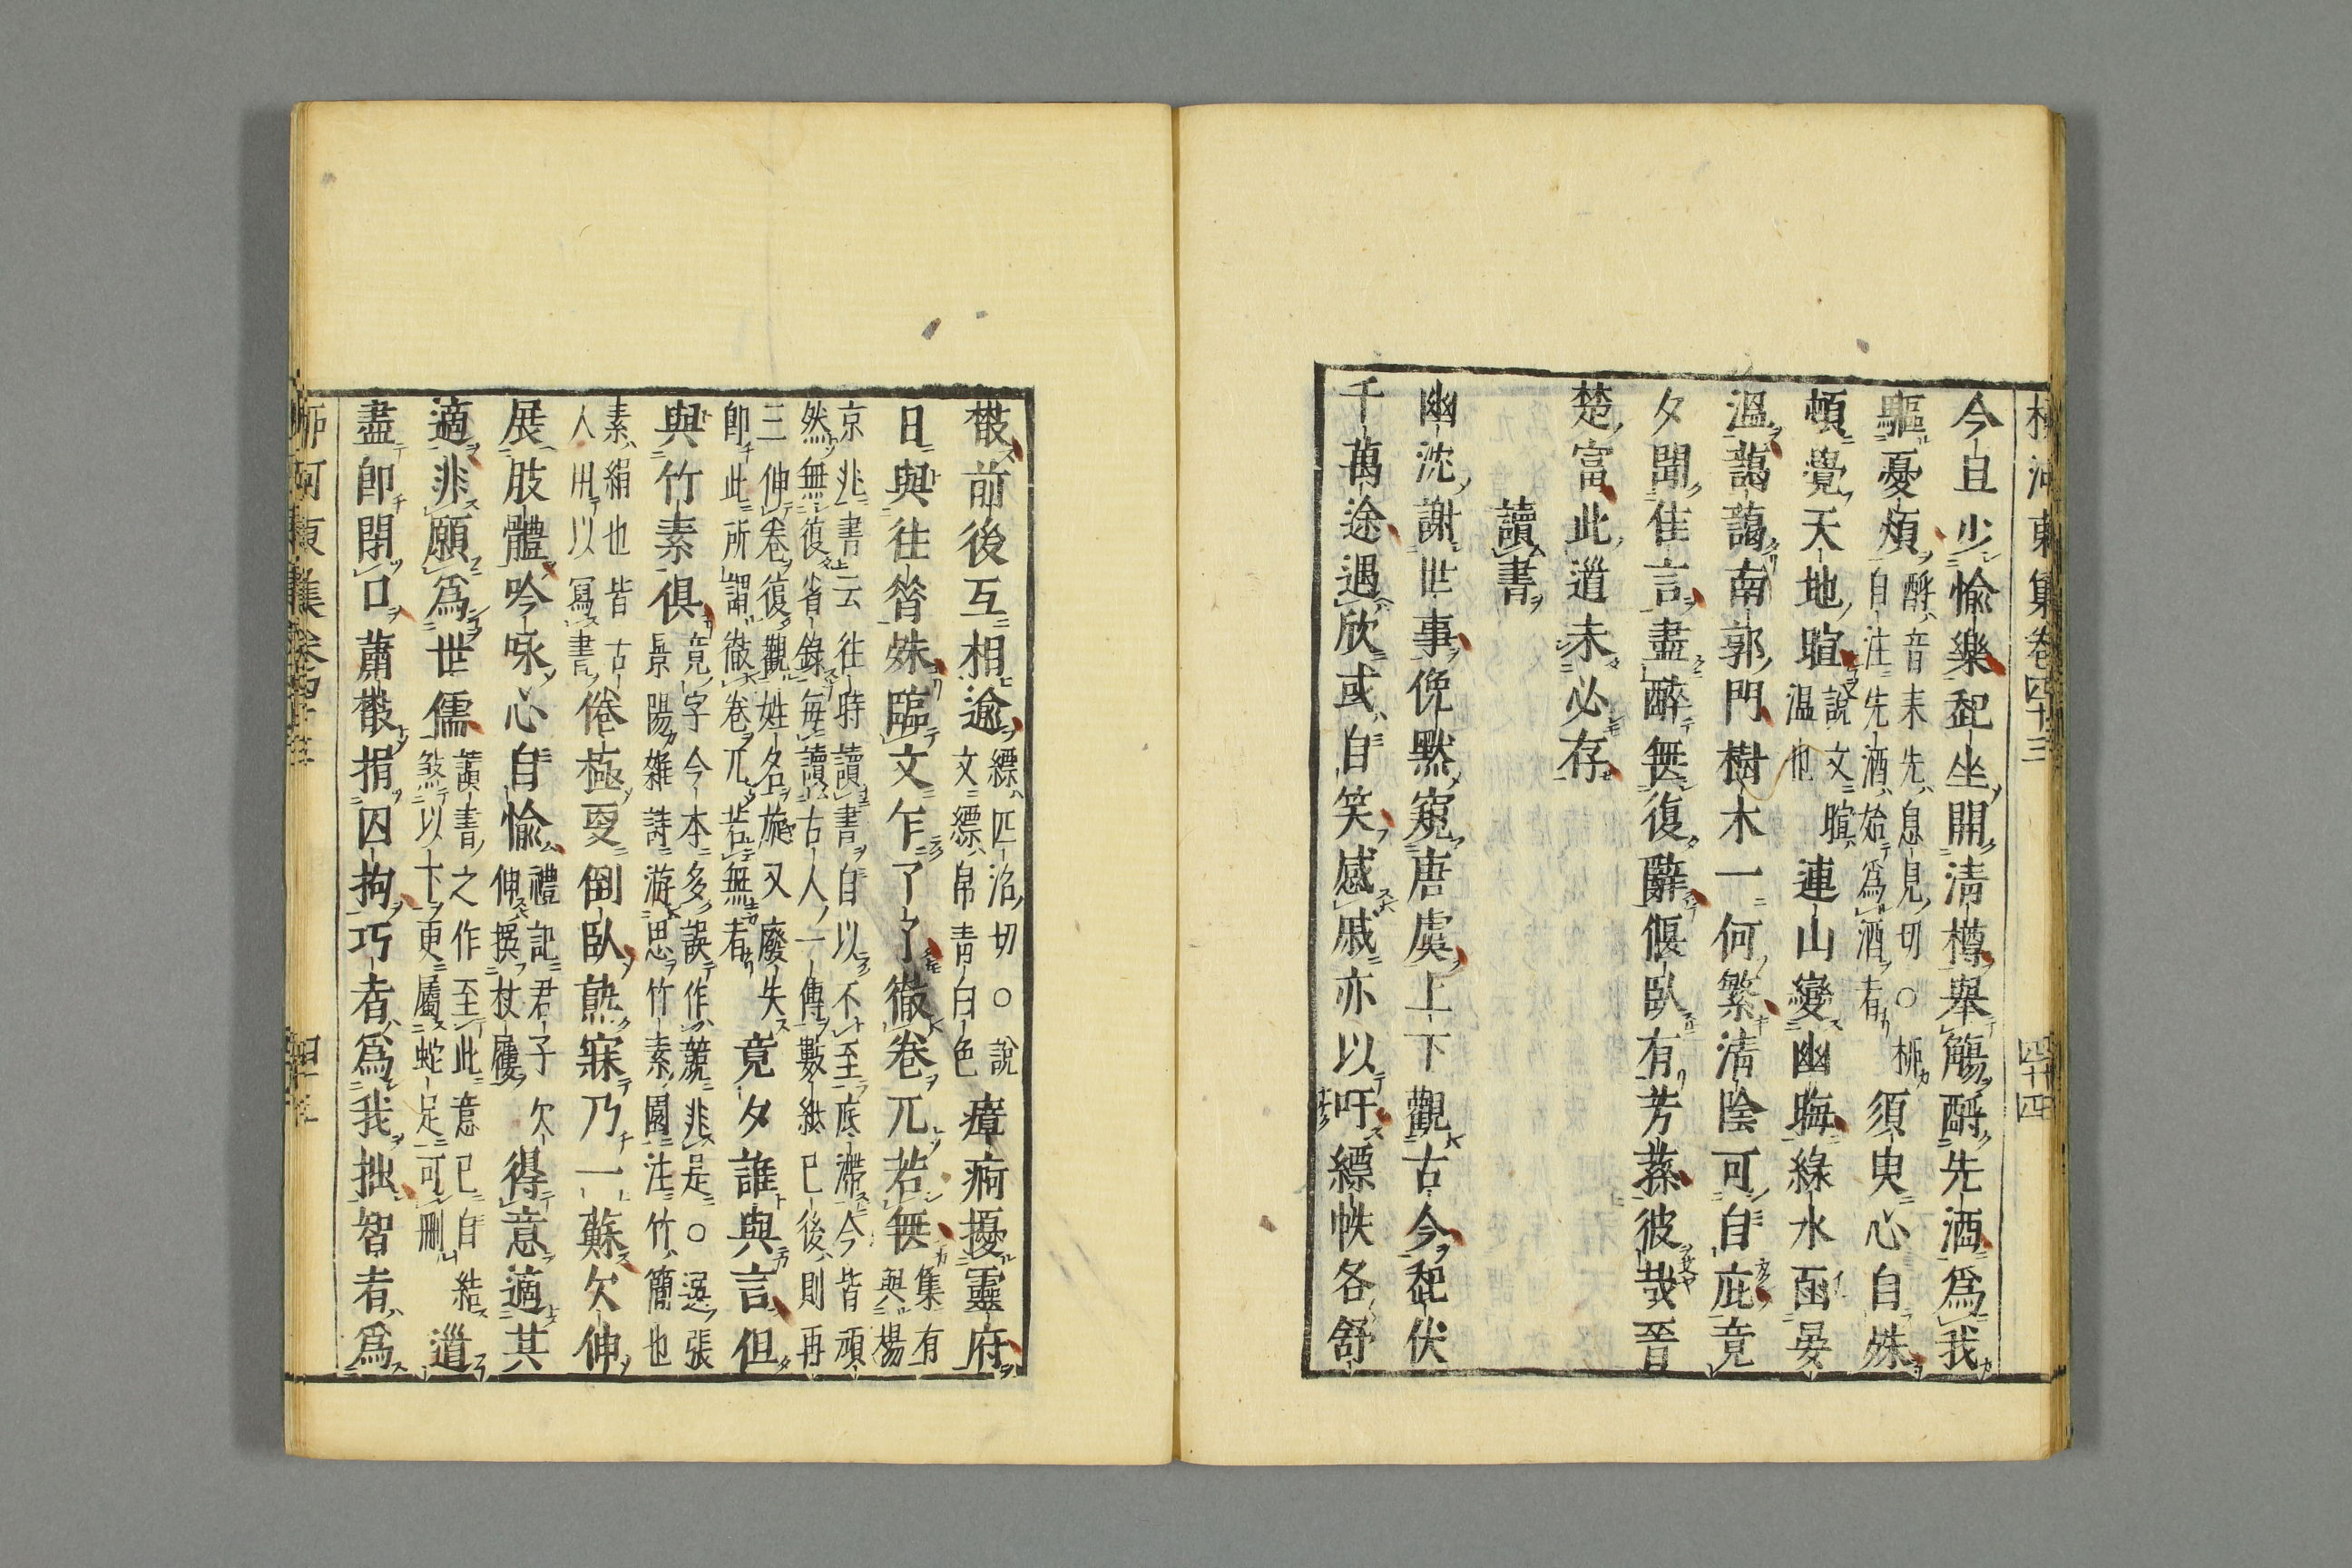 柳河東集卷四十三　四十四
今旦少愉樂起坐開清樽舉觴酹先酒爲我
驅憂煩
酹音耒先息見切○柳
自注先酒始爲酒者
須臾心自殊
頓覺天地暄
說文暄
温也
連山變幽晦綠水函晏
溫藹藹南郭門樹木一何繁清陰可自庇竟
夕聞佳言盡醉無復辭偃臥有芳蓀彼哉晉
楚富此道未必存
讀書
幽沈謝世事俛默窺唐虞上下觀古今起伏
千萬途遇欣或自笑感戚亦以吁縹帙各舒
散前後互相逾
縹匹沼切○說
文縹帛青白色
瘴痾擾靈府
日與往昝殊臨文乍了了徹卷兀若無
集有
與楊
京兆書云往時讀書自以不至底滯今皆頑
然無復省錄每讀古人一傳數紙已後則再
三伸卷復觀姓名旋又廢失
卽此所謂徹卷兀若無者
竟夕誰與言但
與竹素俱
竟字今本多誤作競非是○選張
景陽雜詩游思竹素園注竹簡也
素絹也皆古
人用以寫書
倦極更倒臥熟寐乃一蘇欠伸
展肢體吟咏心自愉
禮記君子欠
伸撰杖屨
得意適其
適非願爲世儒
讀書之作至此意已自結
煞以下更屬蛇足可刪
道
盡卽閉口蕭散捐囚拘巧者爲我拙智者爲
柳河東集卷四十三